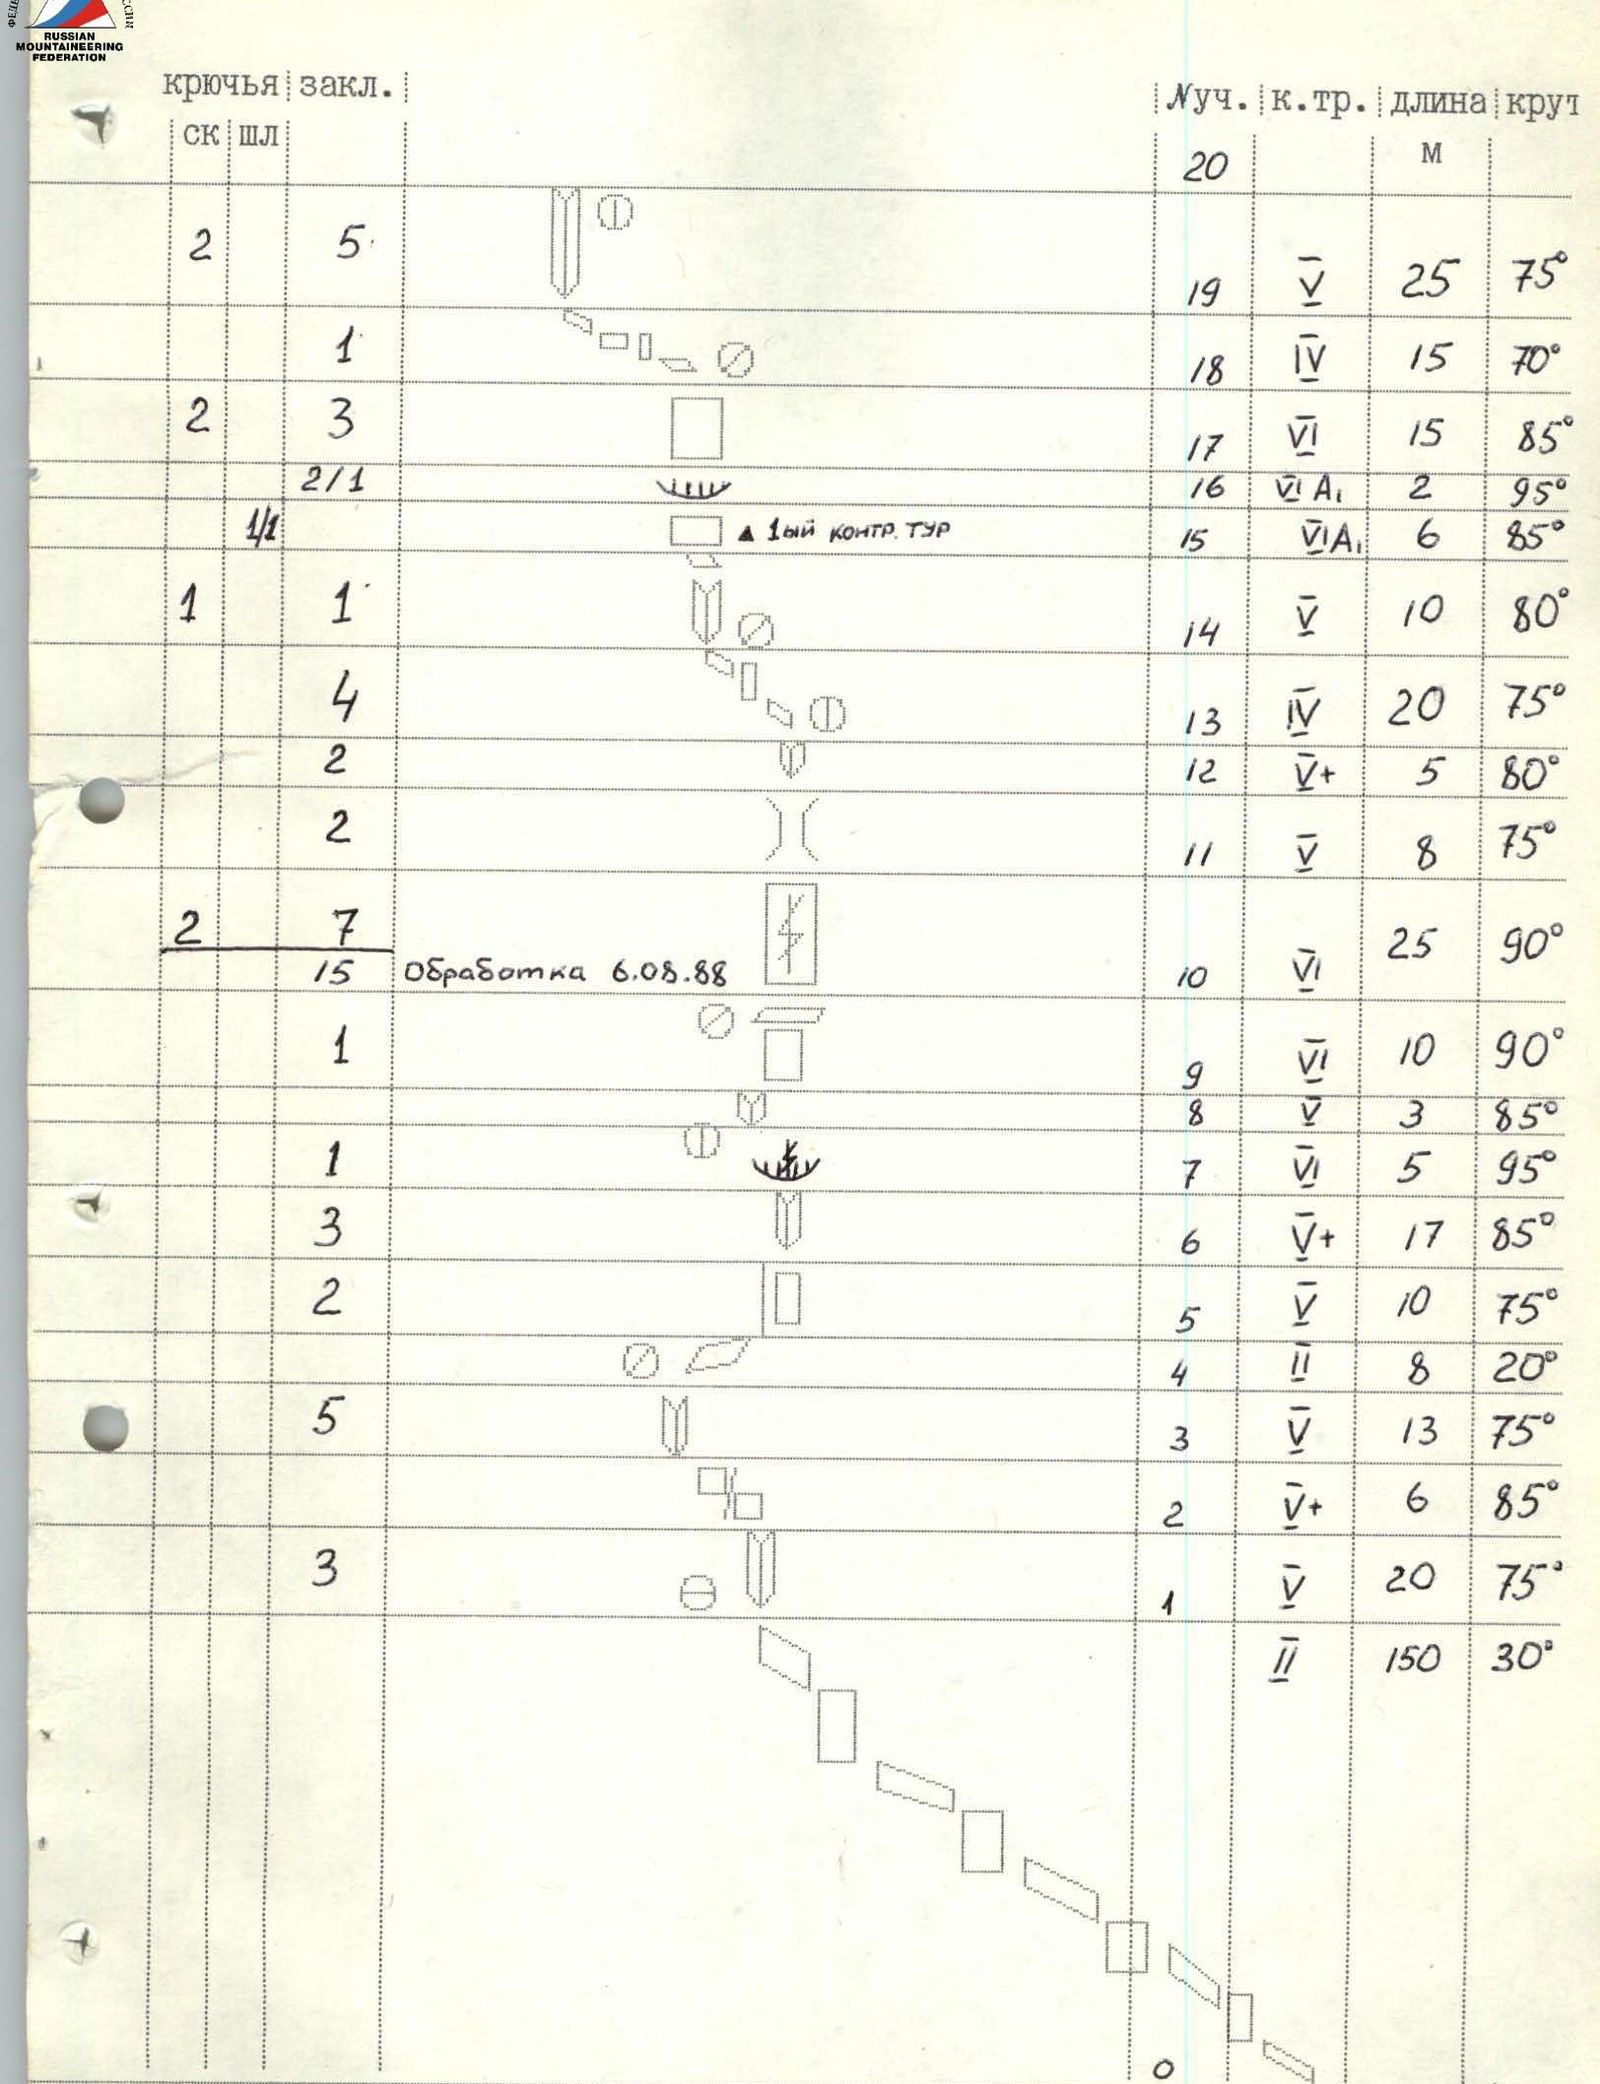 RUSSIAN
MOUNTAINEERING
FEDERATION
крючья закл. №уч. к.тр. длина крут
ск шл 20 м
2 5 19 V 25 75°
1 18 IV 15 70°
2 3 17 VI 15 85°
2/1 16 VI A1 2 95°
1/1 ▲ 1ый контр. тур 15 VI A1 6 85°
1 1 14 V 10 80°
4 13 IV 20 75°
2 12 V+ 5 80°
2 11 V 8 75°
2 7 10 VI 25 90°
15 Обработка 6.08.88
1 9 VI 10 90°
8 V 3 85°
1 7 VI 5 95°
3 6 V+ 17 85°
2 5 V 10 75°
4 II 8 20°
5 3 V 13 75°
2 V+ 6 85°
3 1 V 20 75°
II 150 30°
0